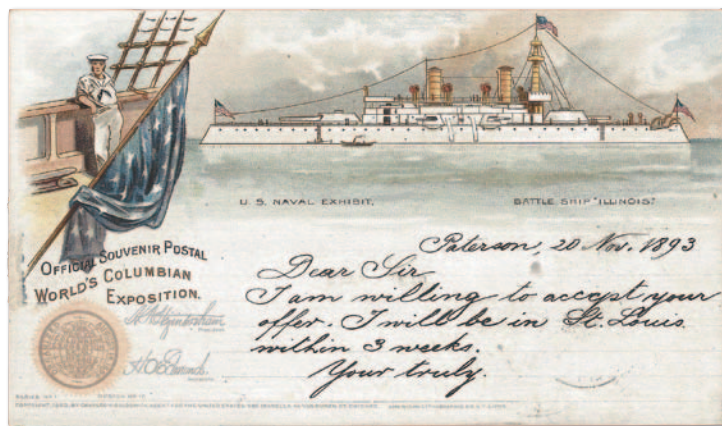 U. S. NAVAL EXHIBIT.
BATTLE SHIP "ILLINOIS."
OFFICIAL SOUVENIR POSTAL
WORLD'S COLUMBIAN
EXPOSITION.
Paterson, 20 Nov. 1893
Dear Sir
I am willing to accept your
offer. I will be in St. Louis
within 3 weeks.
Your truly.
PRESIDENT.